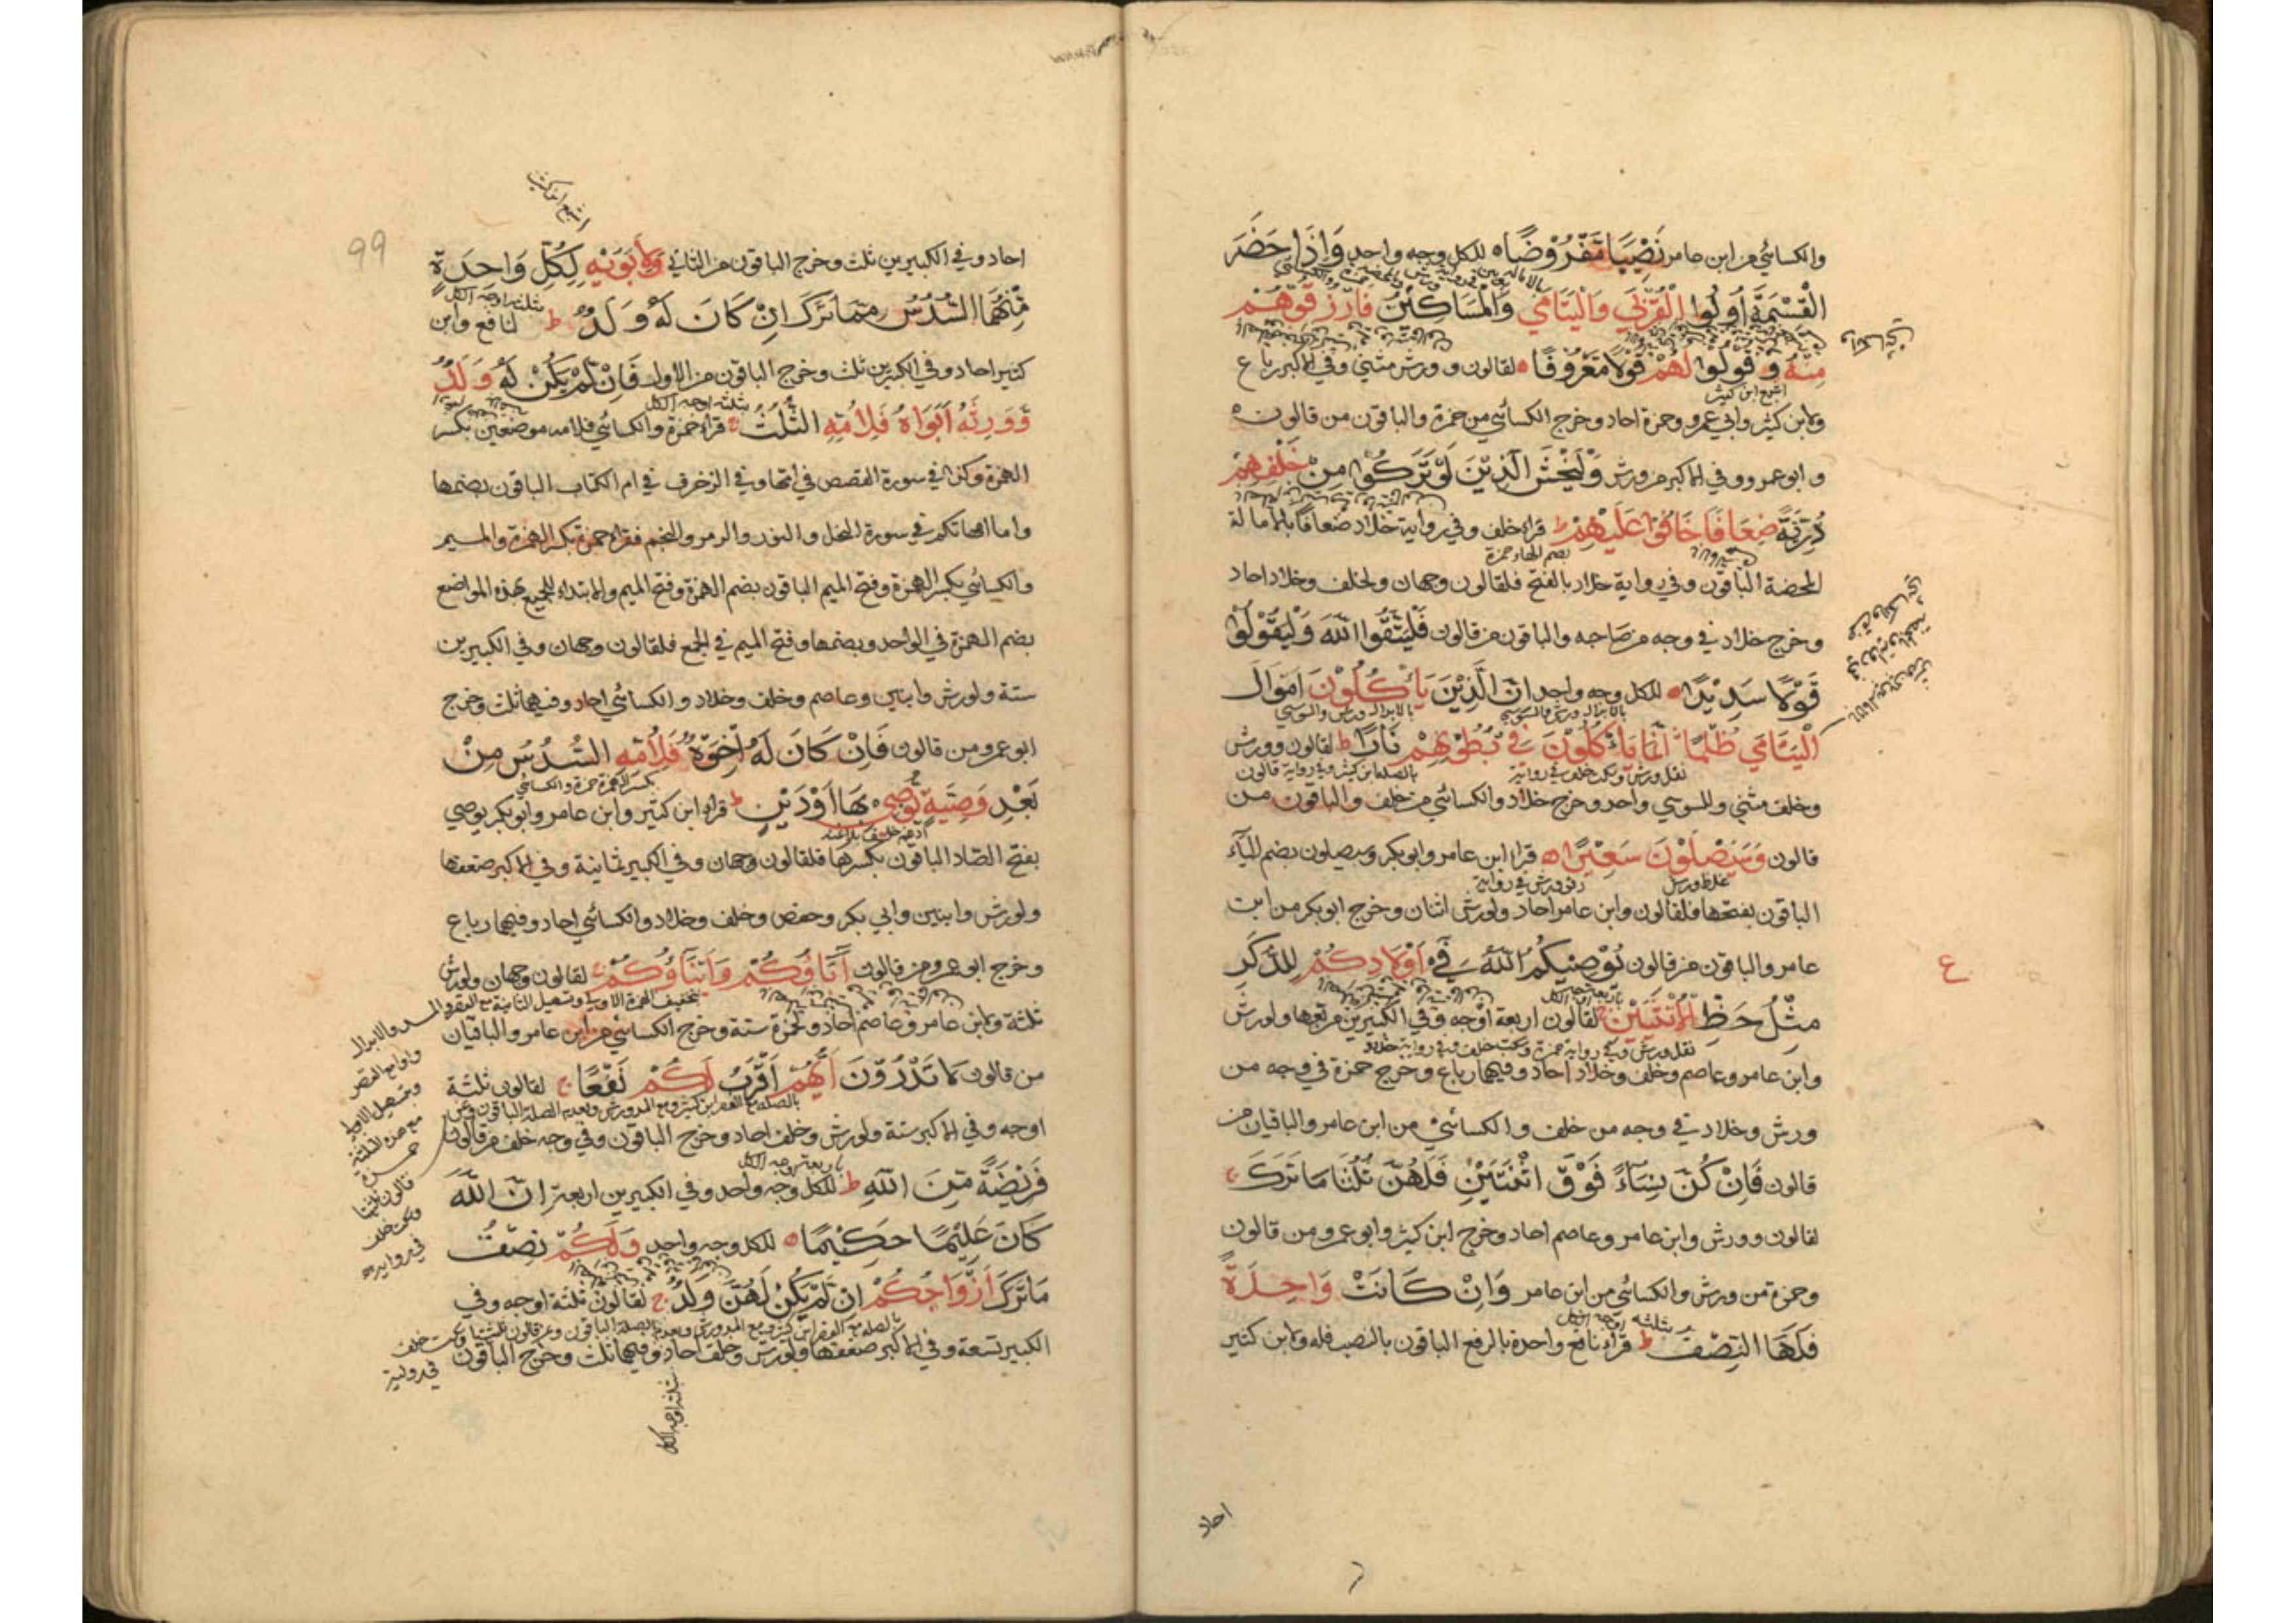 والكسائي من ابن عامر نَصِيبًا مَفْرُوْضًا ه للكل وجه واحد وَاِذَا حَضَرَ
الْقِسْمَةَ اُولُوا الْقُرْبٰي وَالْيَتَامٰي وَالْمَسَاكِيْنُ فَارْزُقُوْهُمْ
مِنْهُ وَقُولُوا لَهُمْ قَوْلًا مَعْرُوْفًا ه لقالون وورش مثني وفي الاكبر رباع
اشبع ابن كثير
ولابن كثير وابي عمرو وحمزة احاد وخرج الكسائي من حمزة والباقون من قالون ه
وابو عمرو وفي الاكبر من ورش وَلْيَخْشَ الَّذِيْنَ لَوْ تَرَكُوْا مِنْ خَلْفِهِمْ
ذُرِّيَّةً ضِعَافًا خَافُوْا عَلَيْهِمْ ط قراء خلف وفي رواية خلاد ضعافا بالامالة
بضم الهاء حمزة
المحضة الباقون وفي رواية خلاد بالفتح فلقالون وجهان ولخلف وخلاد احاد
وخرج خلاد في وجه من صاحبه والباقون من قالون فَلْيَتَّقُوا اللّٰهَ وَلْيَقُوْلُوْا
قَوْلًا سَدِيْدًا ه للكل وجه واحد اِنَّ الَّذِيْنَ يَأْكُلُوْنَ اَمْوَالَ
بالابدال ورش والسوسي بالابدال ورش والسوسي
الْيَتَامٰي ظُلْمًا اِنَّمَا يَأْكُلُوْنَ فِيْ بُطُوْنِهِمْ نَارًا ط لقالون وورش
نقل ورش وسكت خلف في رواية بالصلة ابن كثير وفي رواية قالون
وخلف مثني وللسوسي واحد وخرج خلاد والكسائي من خلف والباقون من
قالون وَسَيَصْلَوْنَ سَعِيْرًا ه قرا ابن عامر وابو بكر وسيصلون بضم الياء
غلظ ورش رقق ورش في رواية
الباقون بفتحها فلقالون وابن عامر احاد ولورش اثنان وخرج ابو بكر من ابن
عامر والباقون من قالون يُوْصِيْكُمُ اللّٰهُ فِيْ اَوْلَادِكُمْ لِلذَّكَرِ
ع
مِثْلُ حَظِّ الْاُنْثَيَيْنِ لقالون اربعة اوجه وفي الكبيرين مربعها ولورش
نقل ورش وفي رواية حمزة وسكت خلف وفي رواية خلاد
وابن عامر وعاصم وخلف وخلاد احاد وفيهما رباع وخرج حمزة في وجه من
ورش وخلاد في وجه من خلف والكسائي من ابن عامر والباقيان من
قالون فَاِنْ كُنَّ نِسَاءً فَوْقَ اثْنَتَيْنِ فَلَهُنَّ ثُلُثَا مَا تَرَكَ ج
لقالون وورش وابن عامر وعاصم احاد وخرج ابن كثير وابو عمرو من قالون
وحمزة من ورش والكسائي من ابن عامر وَاِنْ كَانَتْ وَاحِدَةً
بثلثة اوجه الكل
فَلَهَا النِّصْفُ ط قراء نافع واحدة بالرفع الباقون بالنصب فله ولابن كثير
احاد
99
احاد وفي الكبيرين ثلث وخرج الباقون من الثاني وَلِاَبَوَيْهِ لِكُلِّ وَاحِدَةٍ
بثلثة اوجه الكل
مِّنْهُمَا السُّدُسُ مِمَّا تَرَكَ اِنْ كَانَ لَهُ وَلَدٌ ط لنافع وابن
كثير احاد وفي الكبيرين ثلث وخرج الباقون من الاول فَاِنْ لَّمْ يَكُنْ لَهُ وَلَدٌ
بثلثة اوجه الكل
وَوَرِثَهُ اَبَوَاهُ فَلِاُمِّهِ الثُّلُثُ ج قراء حمزة والكسائي فلامه موضعين بكسر
الهمزة وكذا في سورة القصص في امها وفي الزخرف في ام الكتاب الباقون بضمها
واما امهاتكم في سورة النحل والنور والزمر والنجم فقراء حمزة بكسر الهمزة والميم
والكسائي بكسر الهمزة وفتح الميم الباقون بضم الهمزة وفتح الميم والابتداء للجميع بهذه المواضع
بضم الهمزة في الواحد وبضمها وفتح الميم في الجمع فلقالون وجهان وفي الكبيرين
ستة ولورش وابنين وعاصم وخلف وخلاد والكسائي احاد وفيهما ثلث وخرج
ابو عمرو من قالون فَاِنْ كَانَ لَهُ اِخْوَةٌ فَلِاُمِّهِ السُّدُسُ مِنْ
بكسر الهمزة حمزة والكسائي
بَعْدِ وَصِيَّةٍ يُوْصِي بِهَا اَوْ دَيْنٍ ط قراء ابن كثير وابن عامر وابو بكر يوصي
ادغم خلف بلا غنه
بفتح الصاد الباقون بكسرها فلقالون وجهان وفي الكبير ثمانية وفي الاكبر ضعفها
ولورش وابنين وابي بكر وحفص وخلف وخلاد والكسائي احاد وفيهما رباع
وخرج ابو عمرو من قالون اٰبَاؤُكُمْ وَاَبْنَاؤُكُمْ ج لقالون وجهان ولورش
ثلثة ولابن عامر وعاصم احاد ولحمزة ستة وخرج الكسائي من ابن عامر والباقيان
من قالون لَا تَدْرُوْنَ اَيُّهُمْ اَقْرَبُ لَكُمْ نَفْعًا ج لقالون ثلثة
اوجه وفي الاكبر ستة ولورش وخلف احاد وخرج الباقون وفي وجه خلف من قالون
باربعة اوجه الكل
فَرِيْضَةً مِّنَ اللّٰهِ ط للكل وجه واحد وفي الكبيرين اربعة اِنَّ اللّٰهَ
كَانَ عَلِيْمًا حَكِيْمًا ه للكل وجه واحد وَلَكُمْ نِصْفُ
مَا تَرَكَ اَزْوَاجُكُمْ اِنْ لَّمْ يَكُنْ لَهُنَّ وَلَدٌ ج لقالون ثلثة اوجه وفي
الكبير تسعة وفي الاكبر ضعفها ولورش وخلف احاد وفيهما ثلث وخرج الباقون
في رواية
بثلثة اوجه الكل